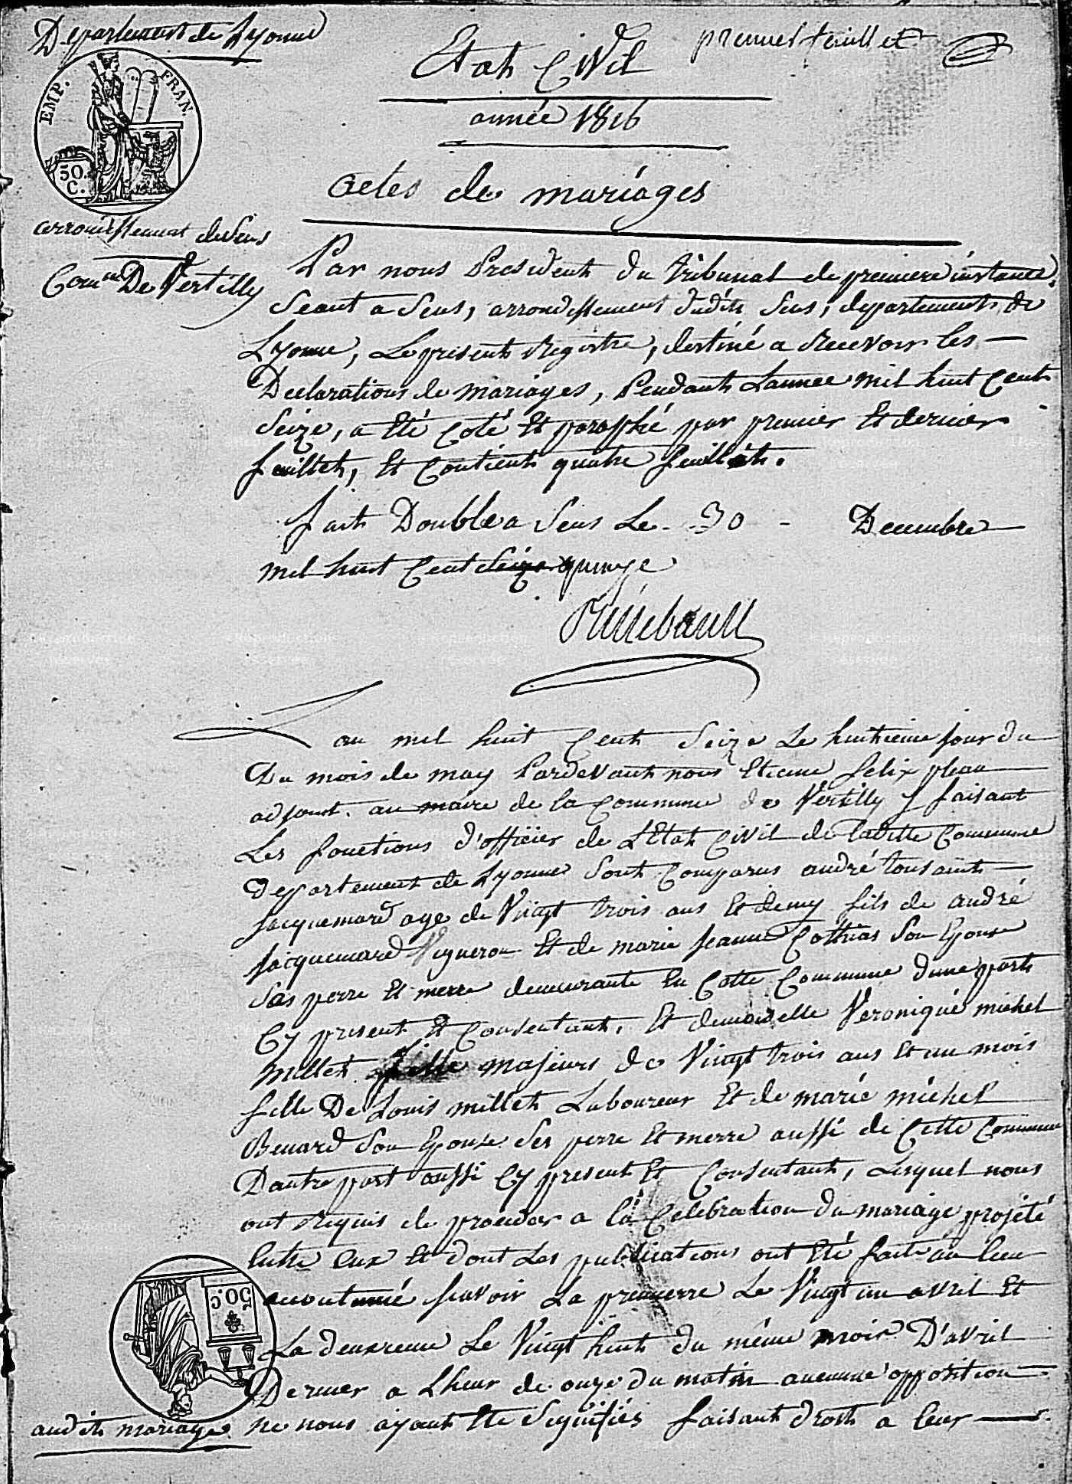 Departement de Lyonne
premier feuillet
Etat Civil
EMP. FRAN.
50. C.
année 1816
actes de mariages
arrondissement de Sens
Comne De Vertilly
Par nous President du tribunal de premiere instance
Seant a Sens, arrondissement dudit Sens, departement de
Lyonne, Le present Registre, destiné a Recevoir les
Declarations de mariages, Pendant Lannee mil huit Cent
Seize, a Eté Coté Et paraphé par premier Et dernier
feuillet, Et Contient quatre feuillets.
fait Double a Sens Le 30 Decembre
mil huit Cent Seize quinze
Lan mil huit Cent Seize Le huitieme jour du
Du mois de may Pardevant nous Etienne felix pleau
adjoint au maire de la Commune de Vertilly y faisant
Les fonctions d'officier de L'Etat Civil de laditte Commune
Departement de Lyonne Sont Comparus andré tousaint
Jacquemard age de Vingt trois ans Et demy fils de andré
Jacquemard Vigneron Et de marie Jeanne Cothias Son Epouse
Ses perre Et merre demeurante En Cette Commune dune part
Cy present Et Consentant, Et demoiselle Veronique michel
millet fille majeure de Vingt trois ans Et un mois
fille De Louis millet Laboureur Et de marie michel
Benard Son Epouse Ses perre Et merre aussi de Cette Commune
Dautre part aussi Cy present Et Consentant, Lesquel nous
ont Requis de proceder a la Celebration du mariage projeté
Entre Eux Et dont Les publications ont Eté faite au lieu
accoutumé Scavoir La premierre Le Vingt un avril Et
50. C.
La deuxieme Le Vingt huit du même mois D'avril
Dernier a Lheur de onze du matin aucunne opposition
audit mariage ne nous ayant Ete Signifiés faisant droit a leur